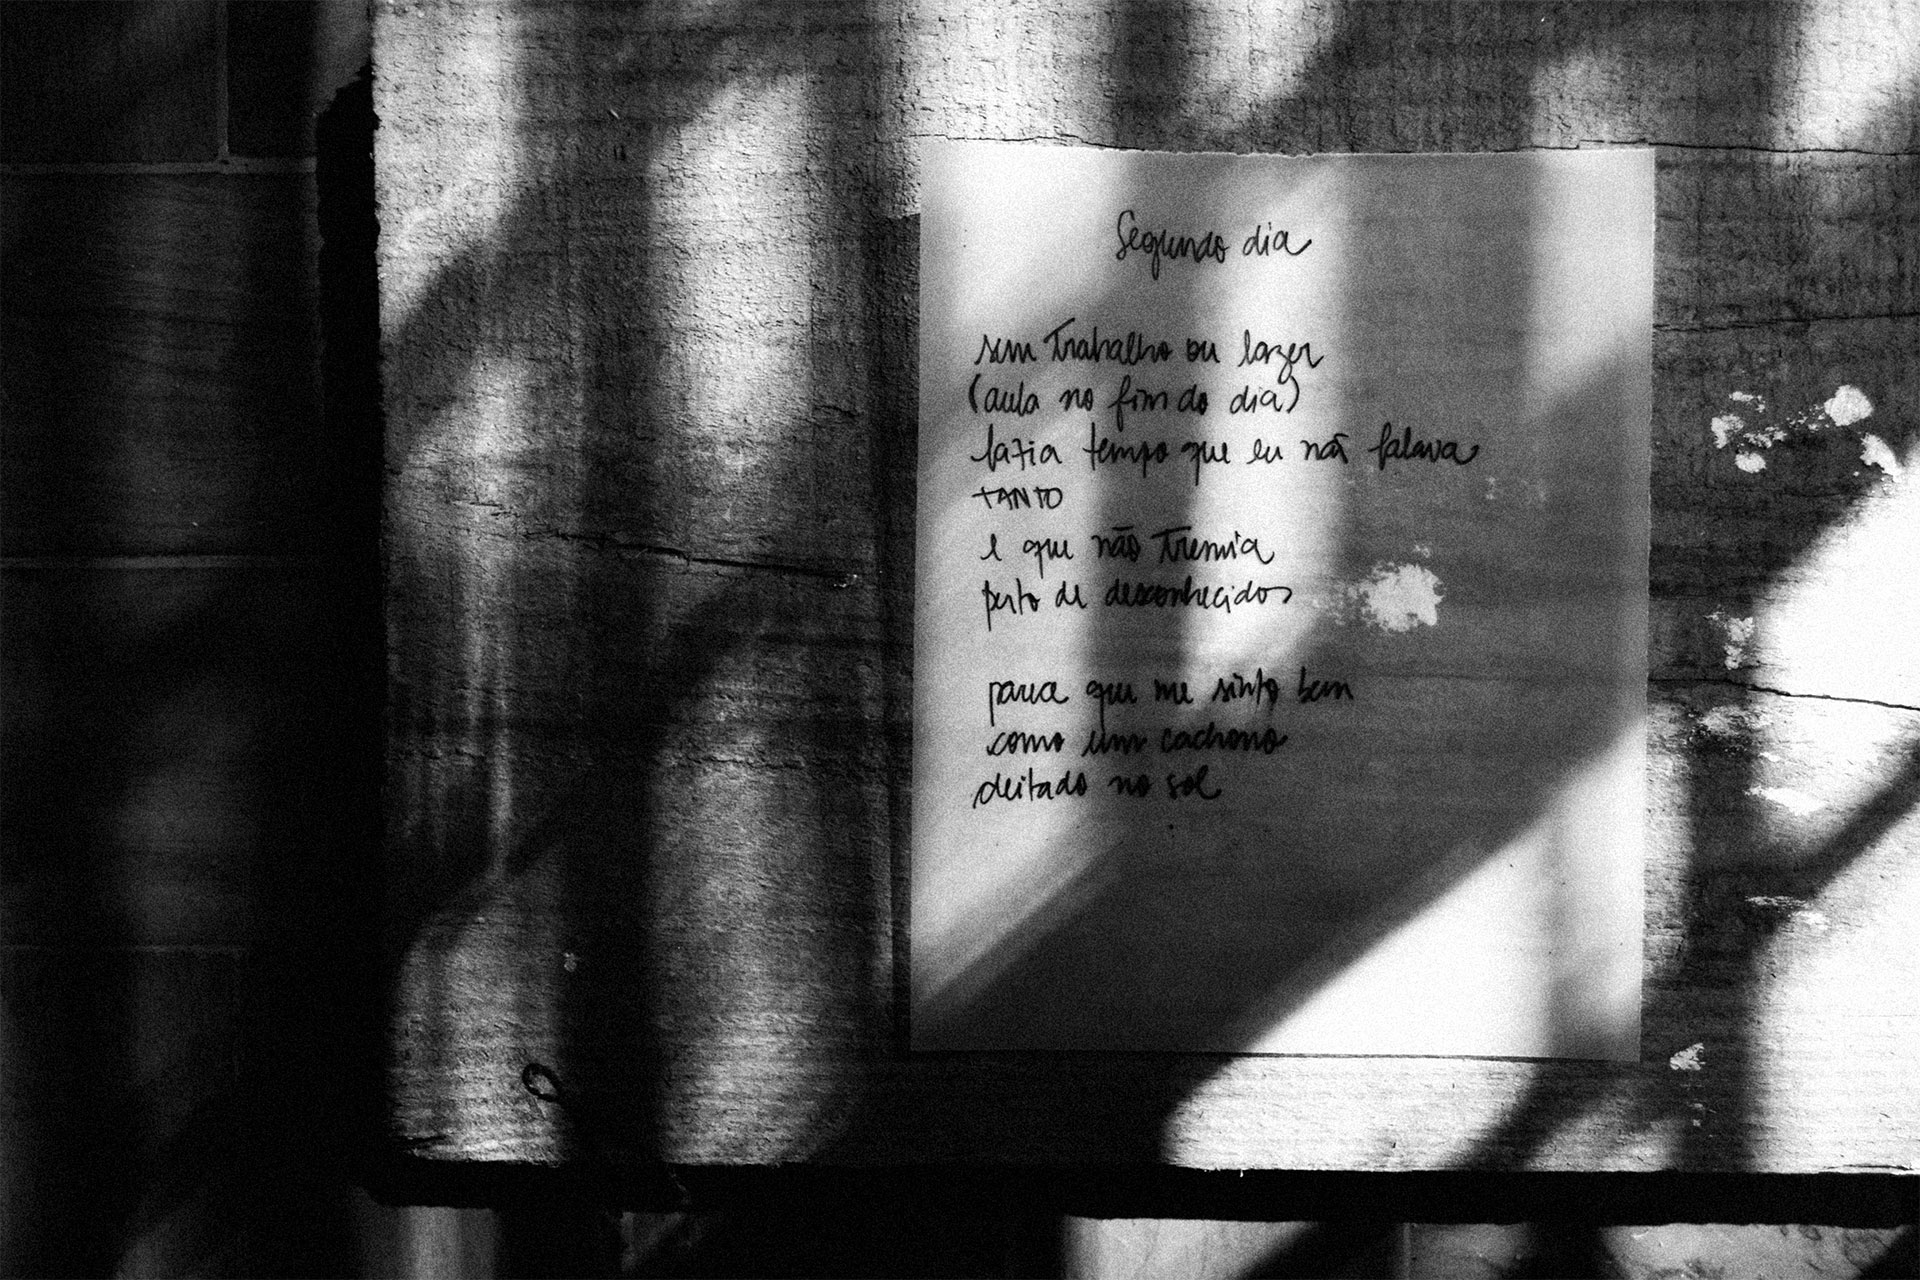 Segundo dia
sem trabalho ou lazer
(aula no fim do dia)
fazia tempo que eu não falava
TANTO
e que não tremia
perto de desconhecidos
parece que me sinto bem
como um cachorro
deitado no sol